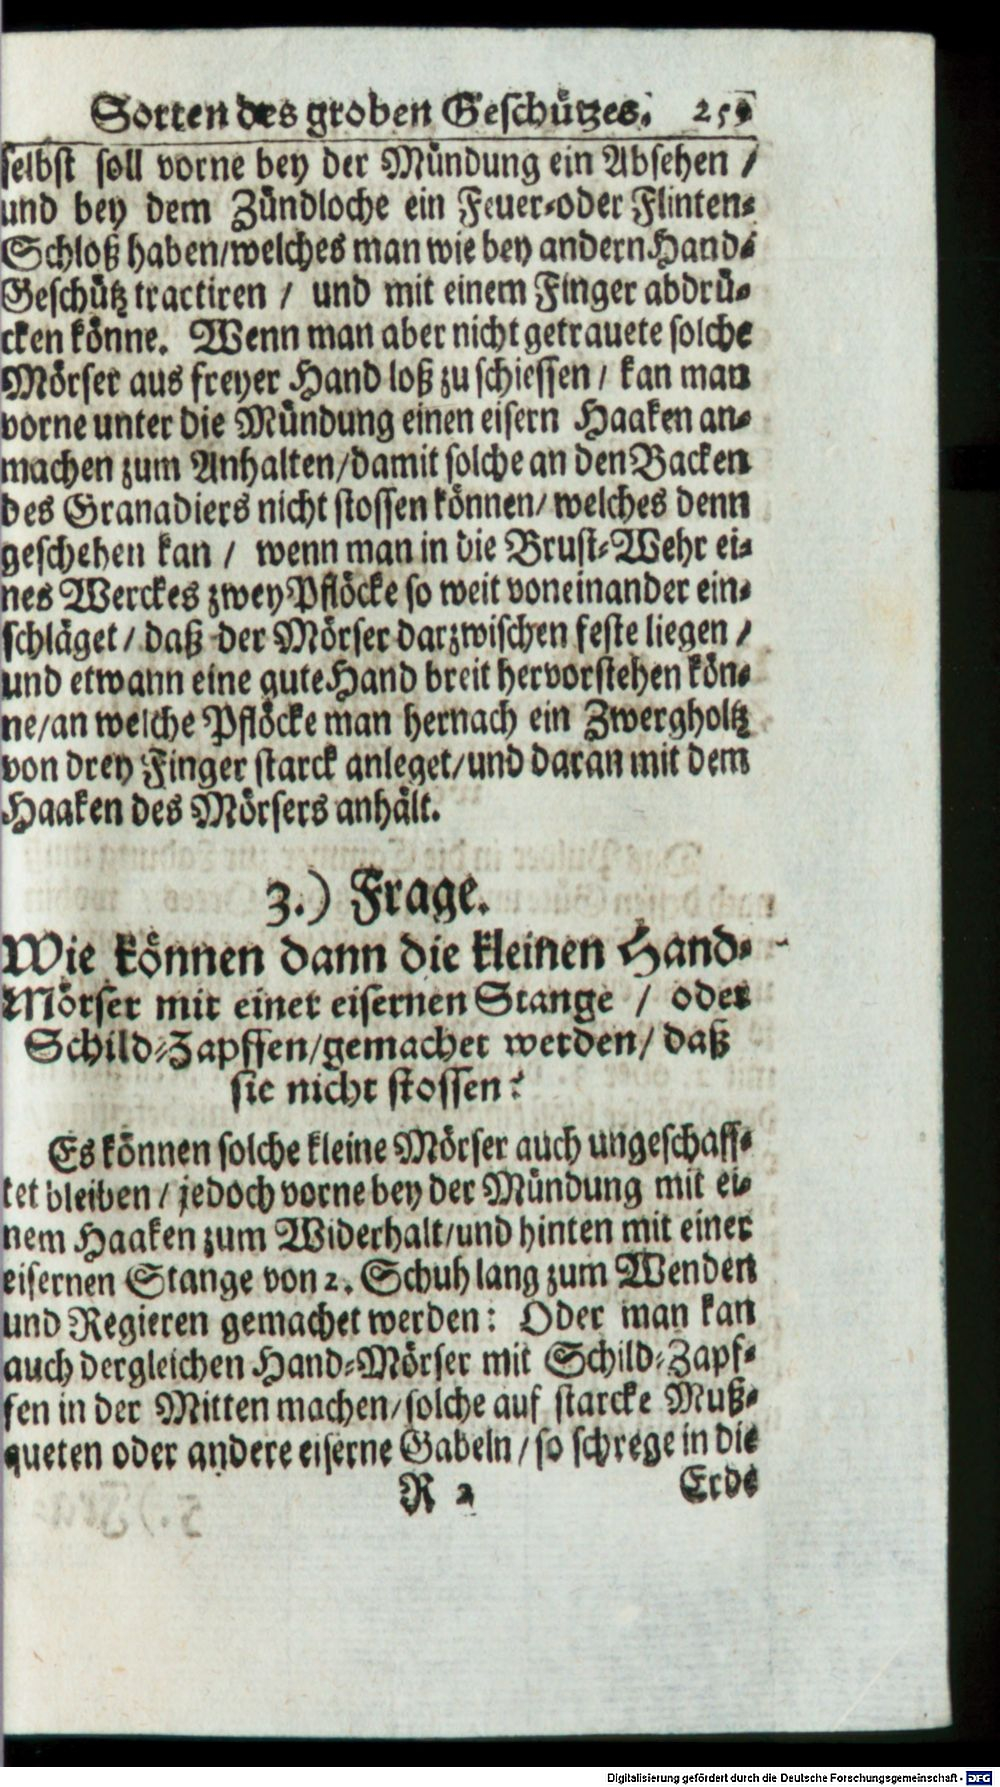 Sorten des groben Geschützes. 259
selbst soll vorne bey der Mündung ein Absehen /
und bey dem Zündloche ein Feuer-oder Flinten-
Schloß haben/welches man wie bey andern Hand-
Geschütz tractiren / und mit einem Finger abdrü-
cken könne. Wenn man aber nicht getrauete solche
Mörser aus freyer Hand loß zu schiessen / kan man
vorne unter die Mündung einen eisern Haaken an-
machen zum Anhalten/damit solche an den Backen
des Granadiers nicht stossen können/ welches denn
geschehen kan / wenn man in die Brust-Wehr ei-
nes Werckes zwey Pflöcke so weit voneinander ein-
schläget / daß der Mörser darzwischen feste liegen /
und etwann eine gute Hand breit hervorstehen kön-
ne/an welche Pflöcke man hernach ein Zwergholtz
von drey Finger starck anleget/und daran mit dem
Haaken des Mörsers anhält.
3.) Frage.
Wie können dann die kleinen Hand-
Mörser mit einer eisernen Stange / oder
Schild-Zapffen/gemachet werden/ daß
sie nicht stossen?
Es können solche kleine Mörser auch ungeschaff-
tet bleiben / jedoch vorne bey der Mündung mit ei-
nem Haaken zum Widerhalt/und hinten mit einer
eisernen Stange von 2. Schuh lang zum Wenden
und Regieren gemachet werden: Oder man kan
auch dergleichen Hand-Mörser mit Schild-Zapf-
fen in der Mitten machen/solche auf starcke Muß-
queten oder andere eiserne Gabeln / so schrege in die
R 2 Erde
Digitalisierung gefördert durch die Deutsche Forschungsgemeinschaft - DFG